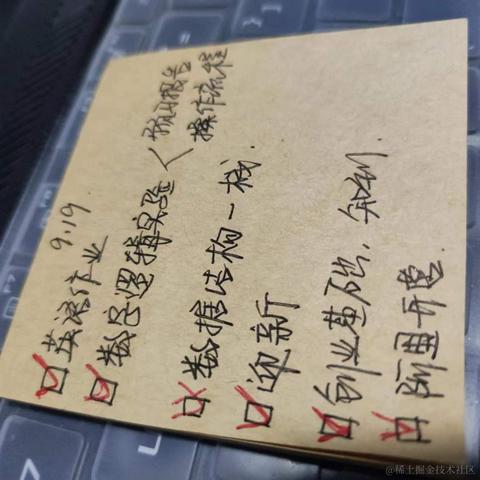 9.19
英语作业
数字逻辑实验 < 预习报告
操作流程
数据结构—栈.
迎新
创业基础.
开营.
@稀土掘金技术社区